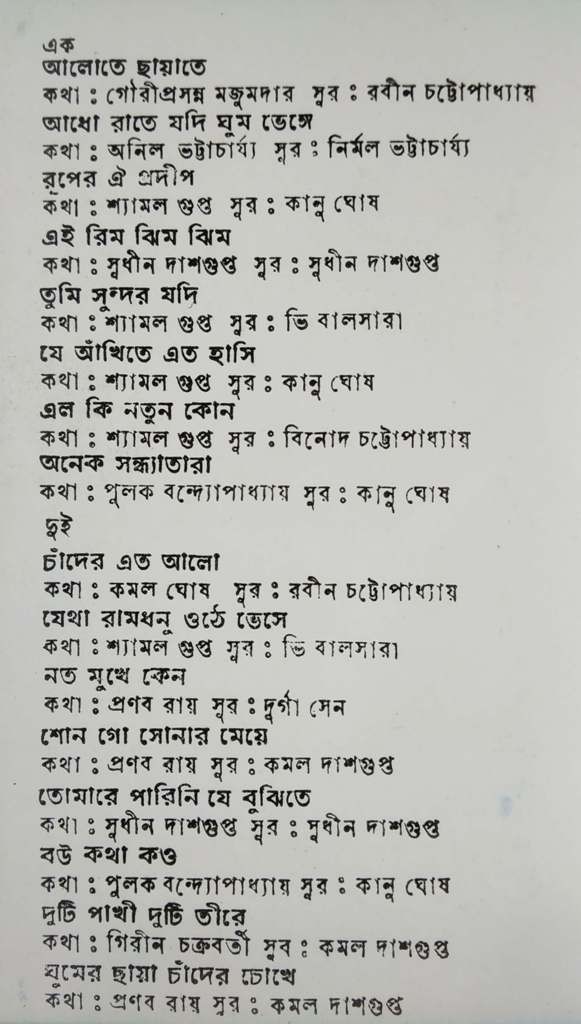 এক
আলোতে ছায়াতে
কথা : গৌরীপ্রসন্ন মজুমদার সুর : রবীন চট্টোপাধ্যায়
আধো রাতে যদি ঘুম ভেঙ্গে
কথা : অনিল ভট্টাচার্য্য সুর : নির্মল ভট্টাচার্য্য
রূপের ঐ প্রদীপ
কথা : শ্যামল গুপ্ত সুর : কানু ঘোষ
এই রিম ঝিম ঝিম
কথা : সুধীন দাশগুপ্ত সুর : সুধীন দাশগুপ্ত
তুমি সুন্দর যদি
কথা : শ্যামল গুপ্ত সুর : ভি বালসারা
যে আঁখিতে এত হাসি
কথা : শ্যামল গুপ্ত সুর : কানু ঘোষ
এল কি নতুন কোন
কথা : শ্যামল গুপ্ত সুর : বিনোদ চট্টোপাধ্যায়
অনেক সন্ধ্যাতারা
কথা : পুলক বন্দ্যোপাধ্যায় সুর : কানু ঘোষ
দুই
চাঁদের এত আলো
কথা : কমল ঘোষ সুর : রবীন চট্টোপাধ্যায়
যেথা রামধনু ওঠে ভেসে
কথা : শ্যামল গুপ্ত সুর : ভি বালসারা
নত মুখে কেন
কথা : প্রণব রায় সুর : দুর্গা সেন
শোন গো সোনার মেয়ে
কথা : প্রণব রায় সুর : কমল দাশগুপ্ত
তোমারে পারিনি যে বুঝিতে
কথা : সুধীন দাশগুপ্ত সুর : সুধীন দাশগুপ্ত
বউ কথা কও
কথা : পুলক বন্দ্যোপাধ্যায় সুর : কানু ঘোষ
দুটি পাখী দুটি তীরে
কথা : গিরীন চক্রবর্তী সুব : কমল দাশগুপ্ত
ঘুমের ছায়া চাঁদের চোখে
কথা : প্রণব রায় সুর : কমল দাশগুপ্ত